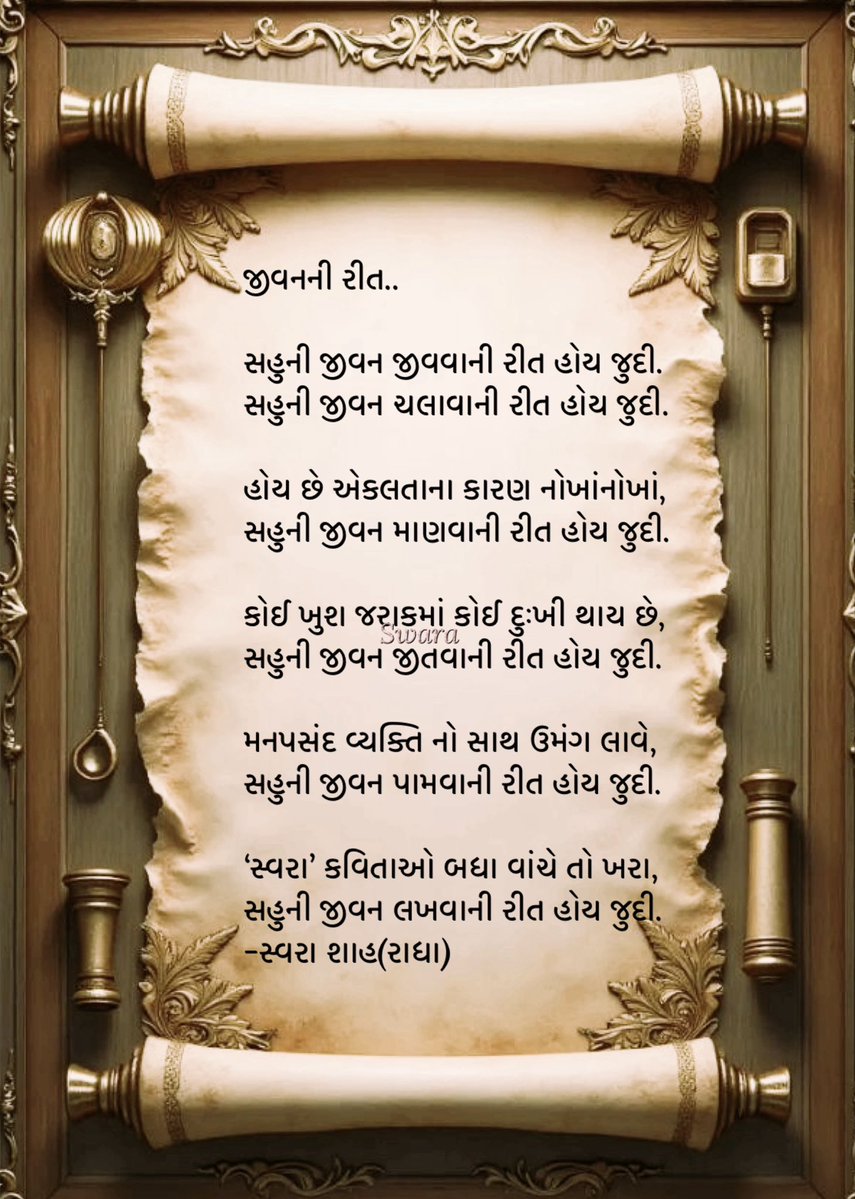 જીવનની રીત..
સહુની જીવન જીવવાની રીત હોય જુદી.
સહુની જીવન ચલાવાની રીત હોય જુદી.
હોય છે એકલતાના કારણ નોખાંનોખાં,
સહુની જીવન માણવાની રીત હોય જુદી.
કોઈ ખુશ જરાકમાં કોઈ દુઃખી થાય છે,
Swara
સહુની જીવન જીતવાની રીત હોય જુદી.
મનપસંદ વ્યક્તિ નો સાથ ઉમંગ લાવે,
સહુની જીવન પામવાની રીત હોય જુદી.
‘સ્વરા’ કવિતાઓ બધા વાંચે તો ખરા,
સહુની જીવન લખવાની રીત હોય જુદી.
-સ્વરા શાહ(રાધા)